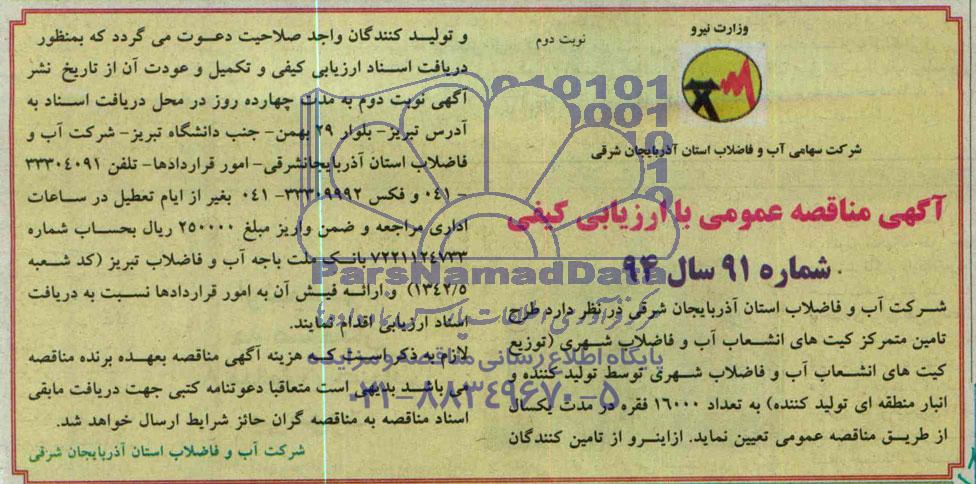 وزارت نیرو
نوبت دوم
شرکت سهامی آب و فاضلاب استان آذربایجان شرقی
آگهی مناقصه عمومی با ارزیابی کیفی
شماره ۹۱ سال ۹۴
شرکت آب و فاضلاب استان آذربایجان شرقی در نظر دارد طرح
تامین متمرکز کیت های انشعاب آب و فاضلاب شهری (توزیع
کیت های انشعاب آب و فاضلاب شهری توسط تولید کننده و
انبار منطقه ای تولید کننده) به تعداد ۱۶۰۰۰ فقره در مدت یکسال
از طریق مناقصه عمومی تعیین نماید. ازاینرو از تامین کنندگان
و تولید کنندگان واجد صلاحیت دعوت می گردد که بمنظور
دریافت اسناد ارزیابی کیفی و تکمیل و عودت آن از تاریخ نشر
آگهی نوبت دوم به مدت چهارده روز در محل دریافت اسناد به
آدرس تبریز- بلوار ۲۹ بهمن- جنب دانشگاه تبریز- شرکت آب و
فاضلاب استان آذربایجانشرقی- امور قراردادها- تلفن ۳۳۳۰۴۰۹۱
- ۰۴۱ و فکس ۳۳۳۰۹۹۹۲- ۰۴۱ بغیر از ایام تعطیل در ساعات
اداری مراجعه و ضمن واریز مبلغ ۲۵۰۰۰۰ ریال بحساب شماره
۷۲۲۱۱۲۴۷۳۳ بانک ملت باجه آب و فاضلاب تبریز (کد شعبه
۱۳۴۲/۵) و ارائه فیش آن به امور قراردادها نسبت به دریافت
اسناد ارزیابی اقدام نمایند.
لازم به ذکر است که هزینه آگهی مناقصه بعهده برنده مناقصه
می باشد بدیهی است متعاقبا دعوتنامه کتبی جهت دریافت مابقی
اسناد مناقصه به مناقصه گران حائز شرایط ارسال خواهد شد.
شرکت آب و فاضلاب استان آذربایجان شرقی
ParsNamadData
پایگاه اطلاع رسانی مناقصه و مزایده
۰۲۱-۸۸۳۴۹۶۷۰-۵